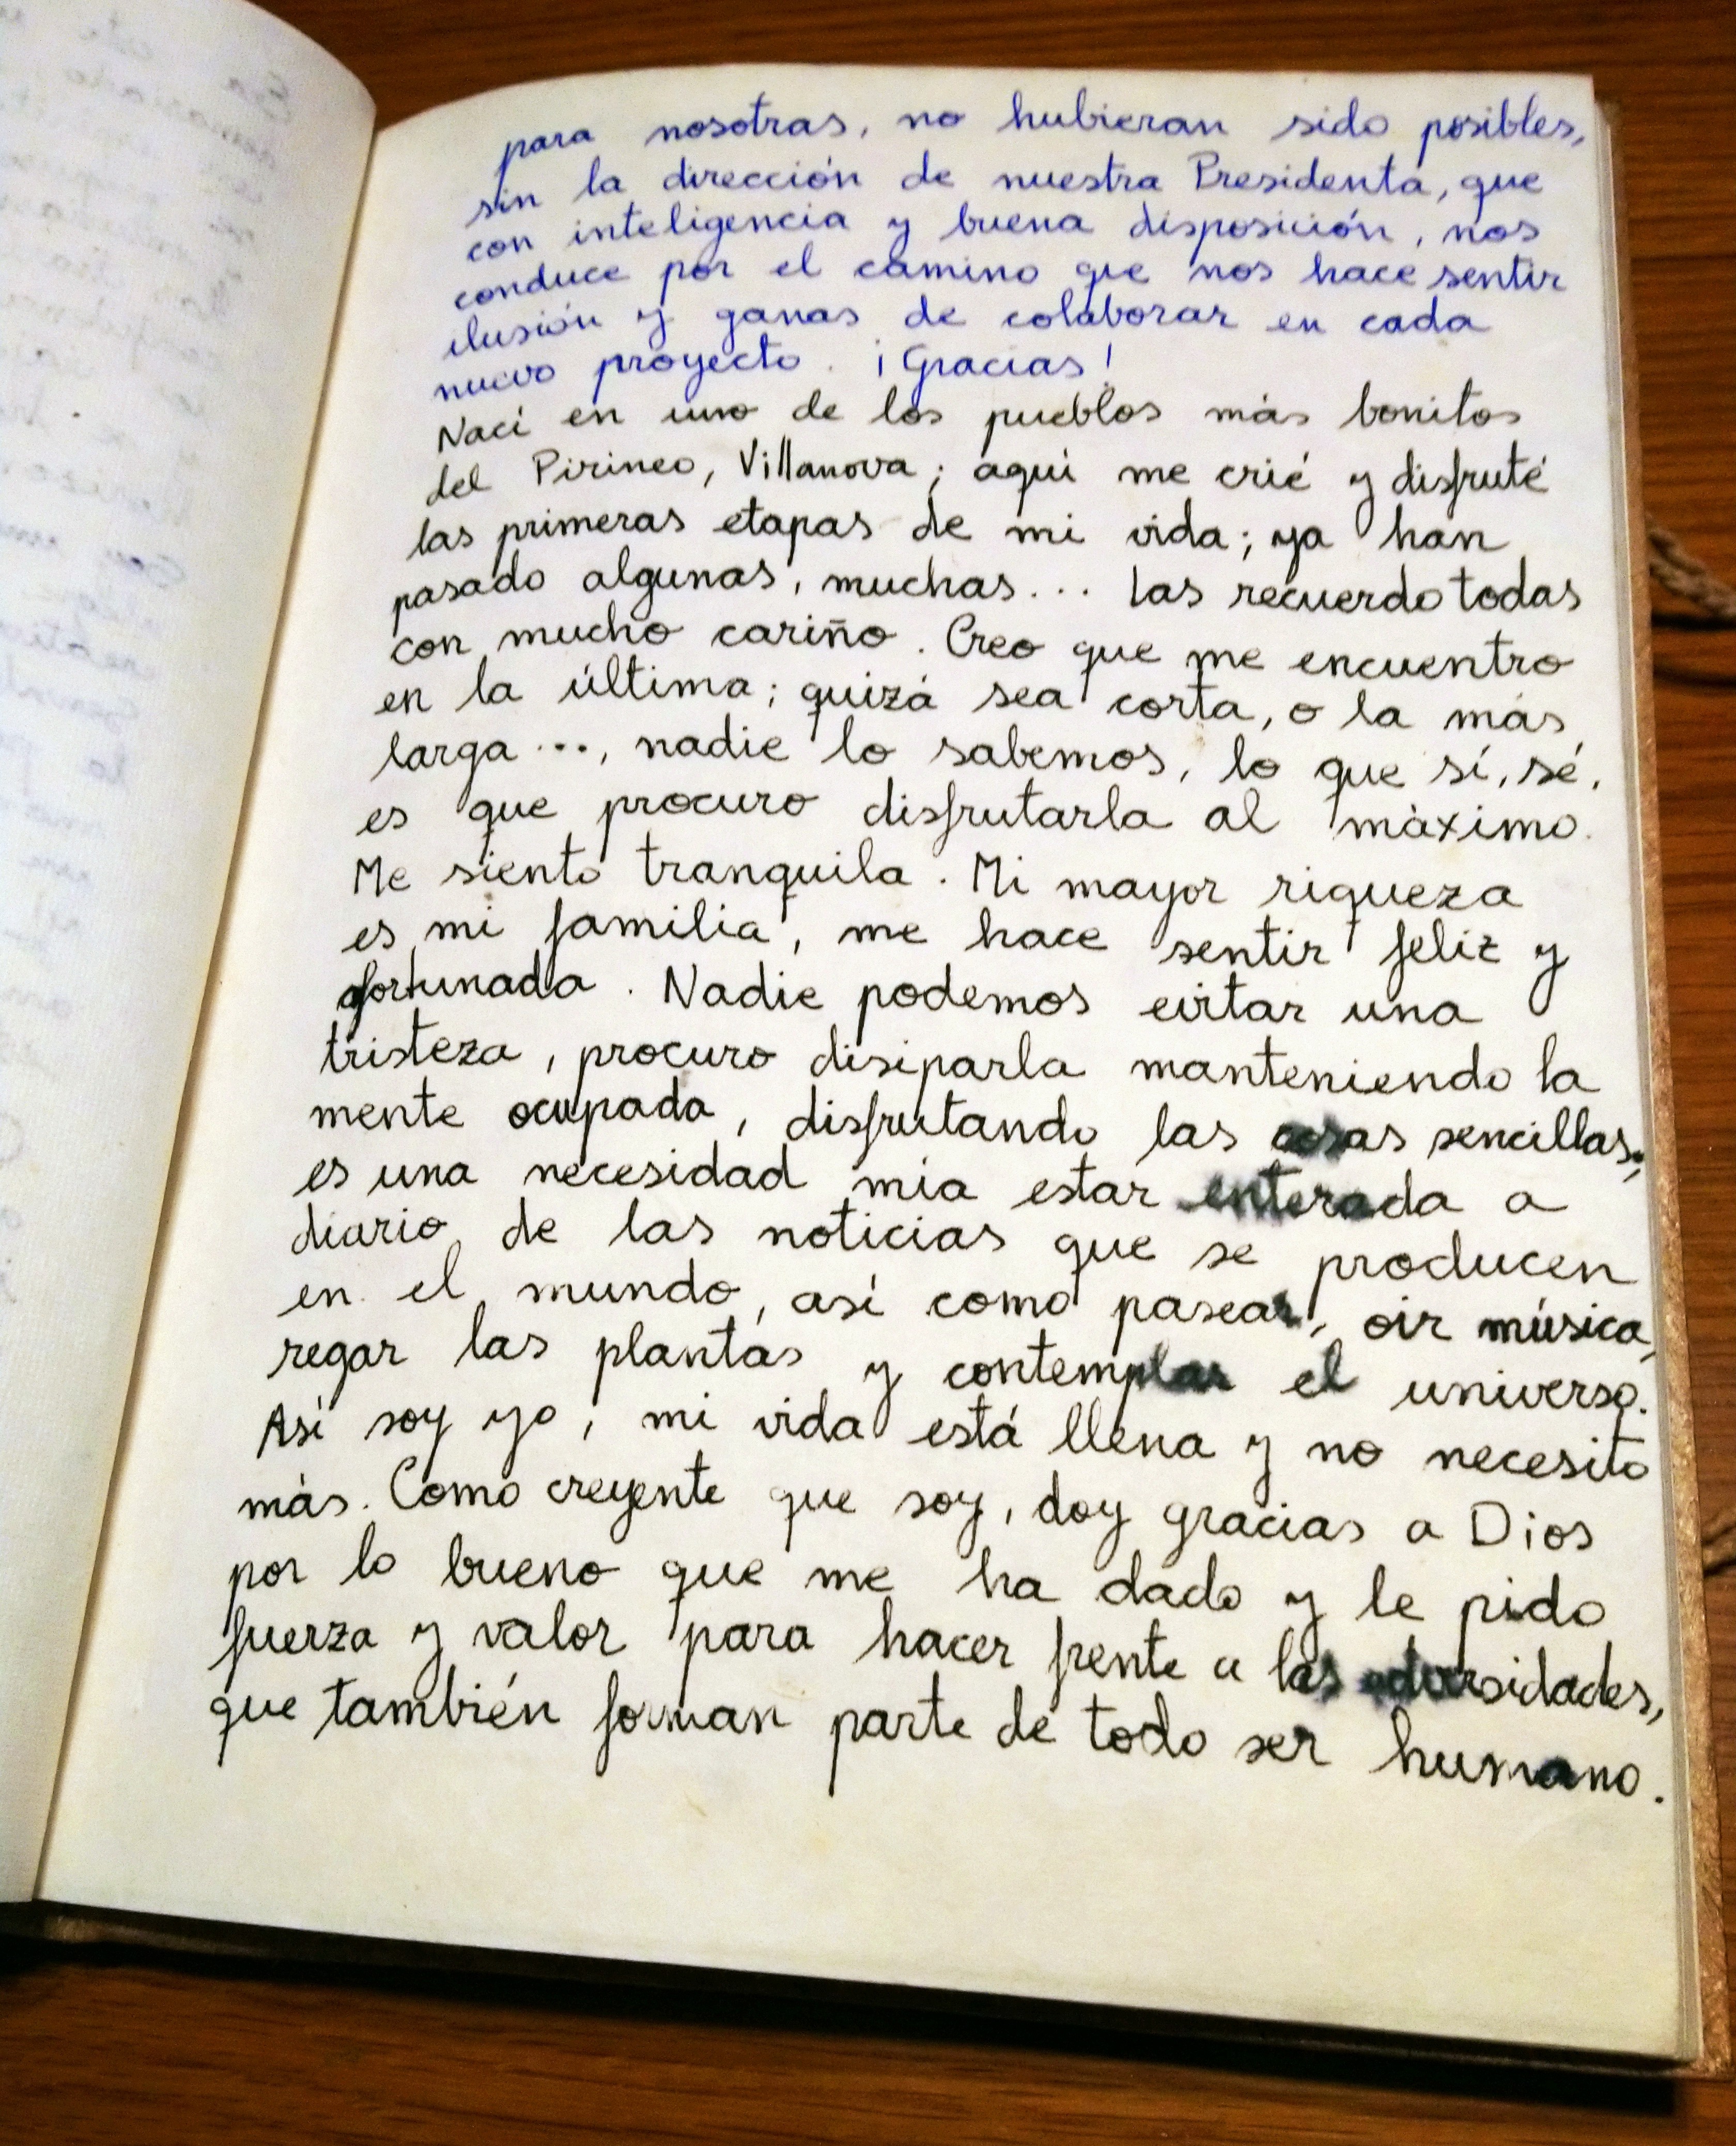 para nosotras, no hubieran sido posibles,
sin la dirección de nuestra Presidenta, que
con inteligencia y buena disposición, nos
conduce por el camino que nos hace sentir
ilusión y ganas de colaborar en cada
nuevo proyecto. ¡Gracias!
Nací en uno de los pueblos más bonitos
del Pirineo, Villanova; aquí me crié y disfruté
las primeras etapas de mi vida; ya han
pasado algunas, muchas... las recuerdo todas
con mucho cariño. Creo que me encuentro
en la última; quizá sea corta, o la más
larga..., nadie lo sabemos, lo que sí, sé,
es que procuro disfrutarla al máximo.
Me siento tranquila. Mi mayor riqueza
es mi familia, me hace sentir feliz y
afortunada. Nadie podemos evitar una
tristeza, procuro disiparla manteniendo la
mente ocupada, disfrutando las cosas sencillas;
es una necesidad mía estar enterada a
diario de las noticias que se producen
en el mundo, así como pasear, oir música,
regar las plantas y contemplar el universo.
Así soy yo, mi vida está llena y no necesito
más. Como creyente que soy, doy gracias a Dios
por lo bueno que me ha dado y le pido
fuerza y valor para hacer frente a las adversidades,
que también forman parte de todo ser humano.